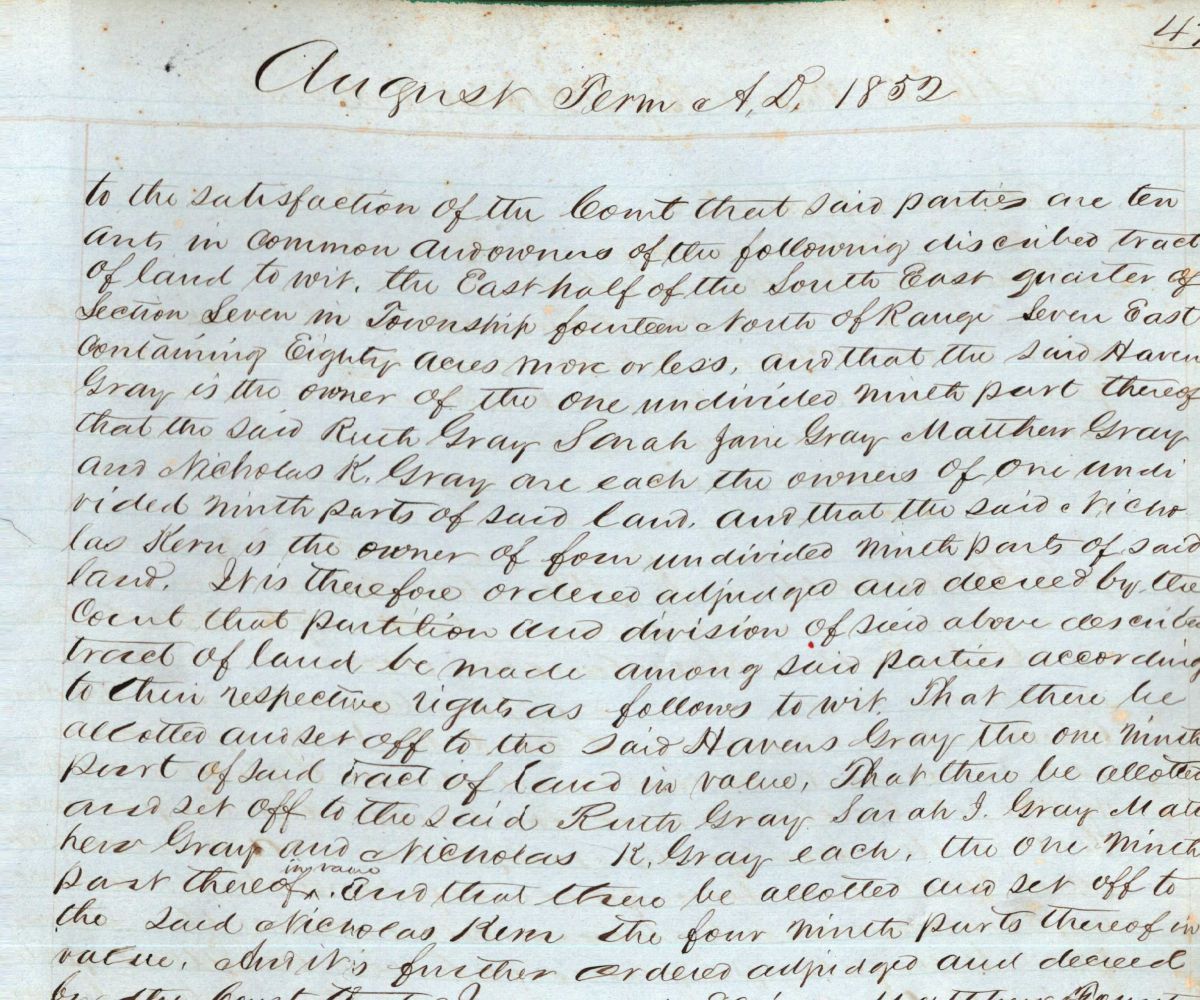 4
August Term A.D. 1852
to the satisfaction of the Court that said parties are ten
ants in common and owners of the following discribed tract
of land to wit. the East half of the South East quarter of
Section Seven in Township fourteen North of Range Seven East
Containing Eighty acres more or less, and that the said Haven
Gray is the owner of the one undivided ninth part thereof
that the said Ruth Gray Sarah Jane Gray Matthew Gray
and Nicholas K. Gray are each the owners of one undi
vided ninth parts of said land. and that the said Nicho
las Kern is the owner of four undivided ninth parts of said
land. It is therefore ordered adjudged and decreed by the
Court that partition and division of said above describe
tract of land be made among said parties according
to their respective rights as follows to wit. That there be
allotted and set off to the said Havens Gray the one ninth
part of said tract of land in value, That there be allotted
and set off to the said Ruth Gray Sarah J. Gray Mat
hew Gray and Nicholas K. Gray each, the one ninth
in value
part thereof ^. And that there be allotted and set off to
the said Nicholas Kern the four ninth parts thereof in
value. And it is further ordered adjudged and decreed
by the Court that